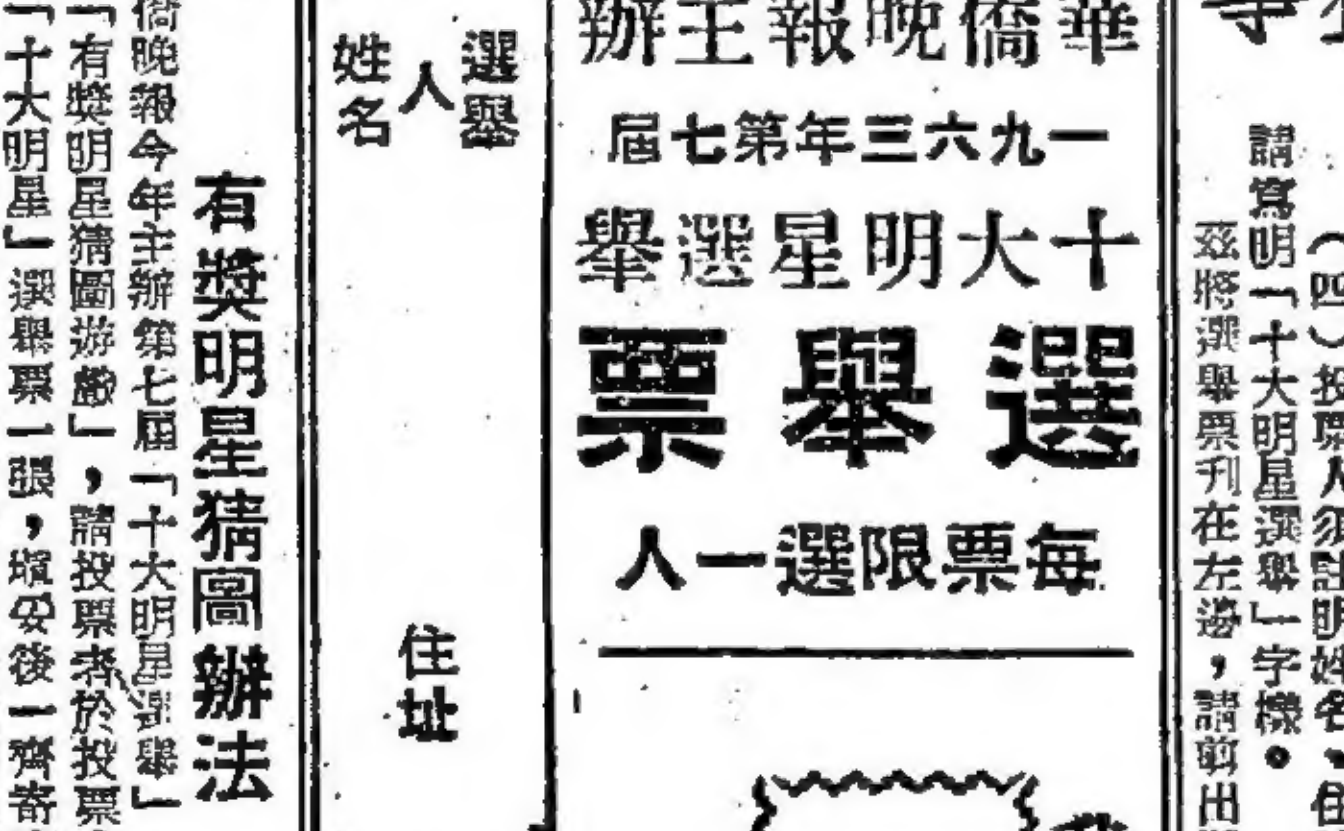 (四)投票人須註明姓名、住
請寫明「十大明星選舉」字樣。
茲將選舉票刋在左邊，請前出
華僑晚報主辦
一九六三年第七屆
十大明星選舉
選舉票
每票限選一人
選舉人姓名
住址
有獎明星猜圖辦法
僑晚報今年主辦第七屆「十大明星選舉」
「有獎明星猜圖遊戲」，請投票者於投票
「十大明星」選舉票一張，塡妥後一齊寄